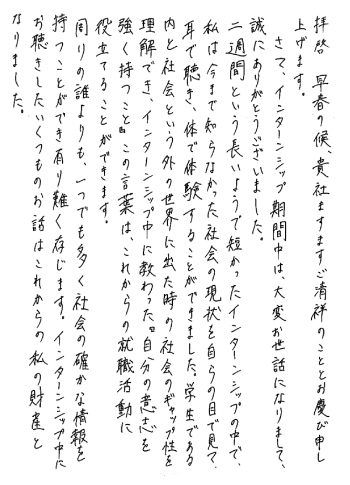 拝啓　早春の候、貴社ますますご清祥のこととお慶び申し
上げます。
さて、インターンシップ期間中は、大変お世話になりまして、
誠にありがとうございました。
二週間という長いようで短かったインターンシップの中で、
私は今まで知らなかった社会の現状を自らの目で見て、
耳で聴き、体で体験することができました。学生である
内と社会という外の世界に出た時の社会のギャップ性を
理解でき、インターンシップ中に教わった『自分の意志を
強く持つこと』この言葉は、これからの就職活動に
役立てることができます。
周りの誰よりも、一つでも多く社会の確かな情報を
持つことができ有り難く存じます。インターンシップ中に
お聴きしたいくつものお話はこれからの私の財産と
なりました。